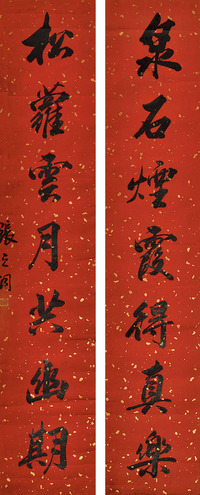 泉石煙霞得真樂
松蘿雲月共幽期
張之洞